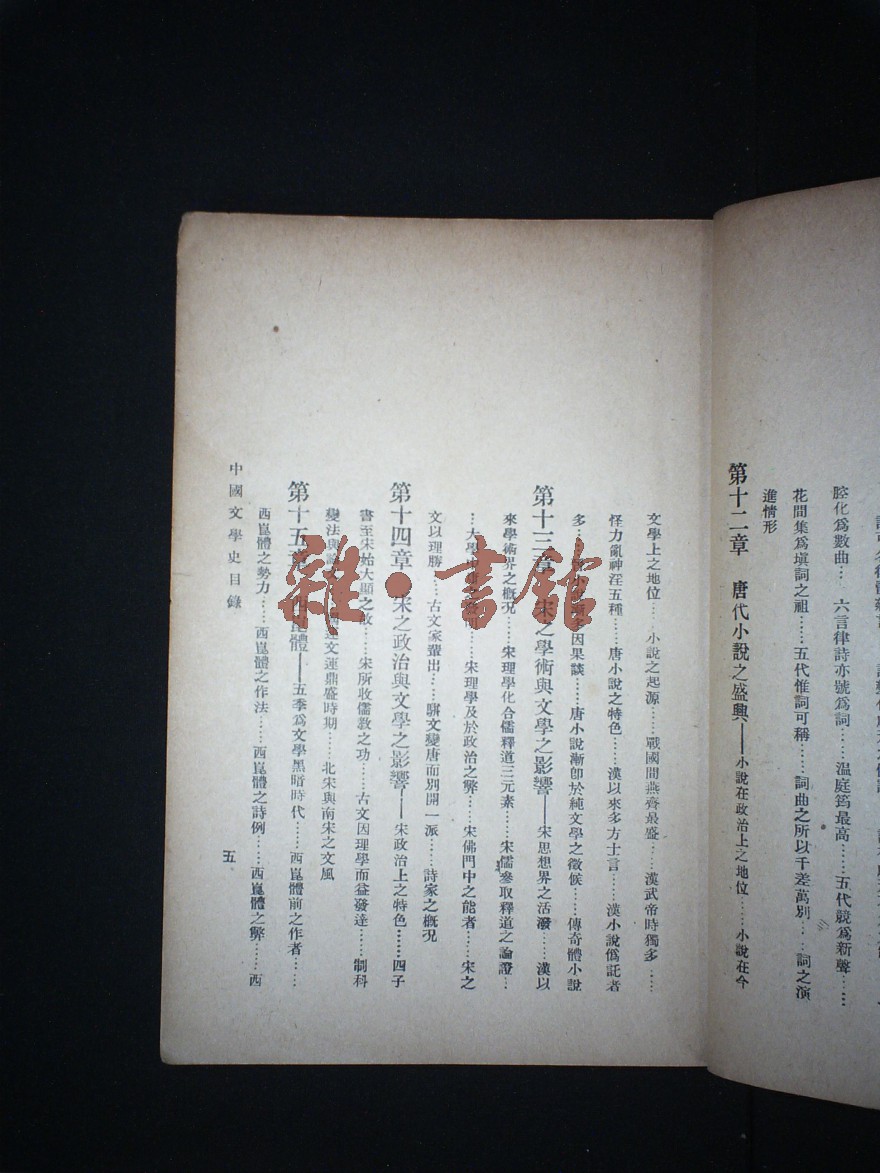 腔化爲數曲… 六言律詩亦號爲詞……温庭筠最高……五代競爲新聲……
花間集爲塡詞之祖……五代惟詞可稱……詞曲之所以千差萬別……詞之演
進情形
第十二章 唐代小說之盛興——小說在政治上之地位……小說在今
文學上之地位……小說之起源……戰國間燕齊最盛……漢武帝時獨多……
怪力亂神淫五種……唐小說之特色……漢以來多方士言……漢小說僞託者
多……小說多因果談……唐小說漸卽於純文學之徵候……傳奇體小說
第十三章 宋之學術與文學之影響——宋思想界之活潑……漢以
來學術界之概況……宋理學化合儒釋道三元素……宋儒參取釋道之論證…
…大學……宋理學及於政治之弊……宋佛門中之能者……宋之
文以理勝……古文家輩出……騈文變唐而別開一派……詩家之概況
第十四章 宋之政治與文學之影響——宋政治上之特色……四子
書至宋始大顯之故……宋所收儒敎之功……古文因理學而益發達……制科
變法與……文運鼎盛時期……北宋與南宋之文風
第十五章 西崑體——五季爲文學黑暗時代……西崑體前之作者……
西崑體之勢力……西崑體之作法……西崑體之詩例……西崑體之弊……西
中國文學史目錄
五
雜·書館